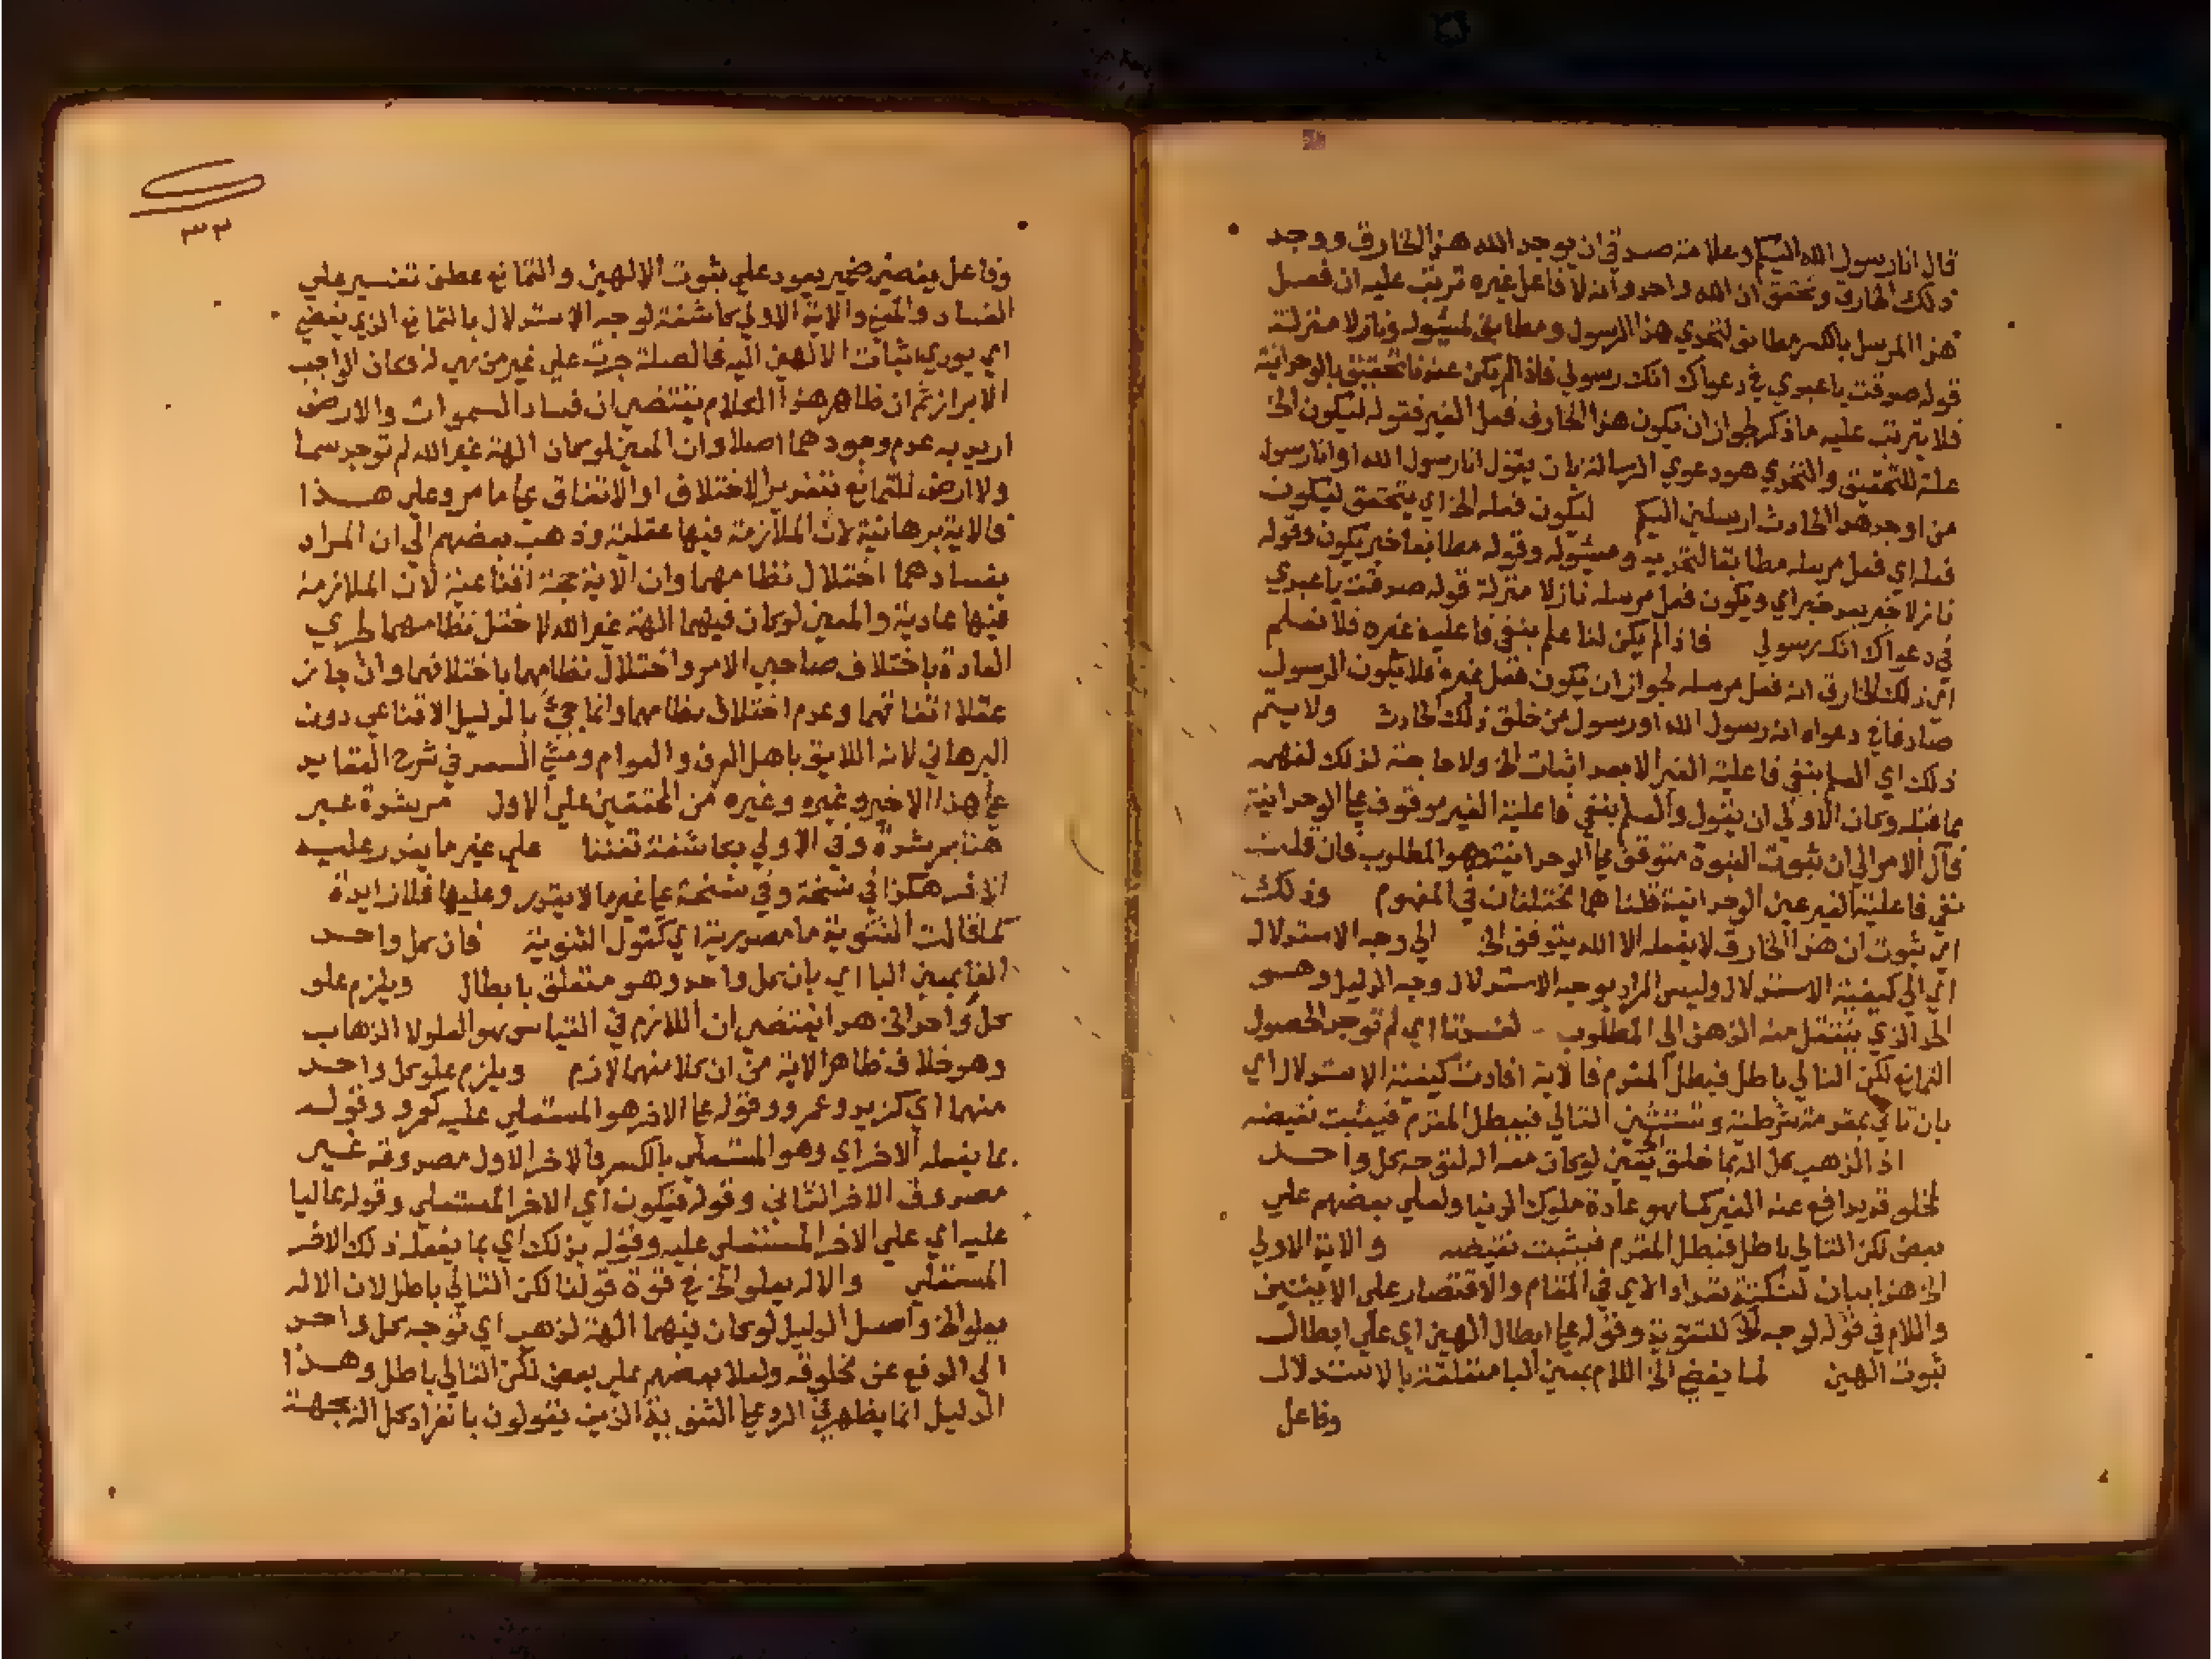 قال انا رسول الله اليكم وعلامة صدقي ان يوجد الله هذا الخارق ووجد
ذلك الخارق وتحقق ان الله واحد وانه لا فاعل غيره ترتب عليه ان فعل
هذا المرسل بالكسر مطابق لتحدي هذا الرسول ومطابق لمسئوله ونازلا منزلة
قوله صدقت يا عبدي في دعواك انك رسولي فاذا لم يكن عندنا تحقيق بالوحدانية
فلا يترتب عليه ما ذكر لجواز ان يكون هذا الخارق فعل الغير فقوله ليكون الخ
علة للتحقيق والتحدي هو دعوي الرسالة بان يقول انا رسول الله او انا رسول
من اوجد هذا الحادث ارسلني اليكم ليكون فعله الخ اي يتحقق ليكون
فعله اي فعل مرسله مطابقا لتحديه ومسئوله وقوله مطابقا خبر يكون وقوله
نازلا خبر بعد خبر اي ويكون فعل مرسله نازلا منزلة قوله صدقت يا عبدي
في دعواك انك رسولي فاذا لم يكن لنا علم بنفي فاعلية غيره فلا نعلم
ان ذلك الخارق انه فعل مرسله لجواز ان يكون فعل غيره فلا يكون الرسول
صادقا في دعواه انه رسول الله او رسول من خلق ذلك الحادث ولا يتم
ذلك اي العلم بنفي فاعلية الغير الا بعد اثبات الخ ولا حاجة لذلك لفهمه
مما قبله وكان الاولي ان يقول والعلم بنفي فاعلية الغير موقوف علي الوحدانية
فآل الامر الي ان ثبوت النبوة متوقف علي الوحدانية وهو المطلوب فان قلت
نفي فاعلية الغير عين الوحدانية قلنا هما مختلفان في المفهوم وذلك
اي ثبوت ان هذا الخارق لا يفعله الا الله يتوقف الخ الي وجه الاستدلال
اي الي كيفية الاستدلال وليس المراد بوجه الاستدلال وجه الدليل وهو
الحد الذي ينتقل منه الذهن الي المطلوب لفسدتا اي لم توجدا لحصول
التمانع لكن التالي باطل فبطل المقدم فالاية افادت كيفية الاستدلال اي
بان تاتي بمقدمة شرطية وتستثني التالي فيبطل المقدم فيثبت نقيضه
اذا لذهب كل اله بما خلق الخ يعني لو كان معه اله لتوجه كل واحد
لمخلوقه يدافع عنه الغير كما هو عادة ملوك الدنيا ولعلي بعضهم علي
بعض لكن التالي باطل فبطل المقدم فيثبت نقيضه والاية الاولي
الخ هذا بيان لنكتة تعداد الاي في المقام والاقتصار علي الايتين
واللام في قوله لوجه الخ للتقوية وقوله علي ابطال الهين اي علي ابطال
ثبوت الهين لما يفضي الخ اللام بمعني البا متعلقة بالاستدلال
وفاعل
٣٣
وفاعل يفضي ضمير يعود علي ثبوت الالهين والتمانع عطف تفسير علي
الفساد والمعني والاية الاولي كاشفة لوجه الاستدلال بالتمانع الذي يفضي
اي يودي اثبات الالهين اليه فالصلة جرت علي غير من هي له وكان الواجب
الابراز ثم ان ظاهر هذا الكلام يقتضي ان فساد السموات والارض
اريد به عدم وجودهما اصلا وان المعني لو كان الهة غير الله لم توجد سما
ولا ارض للتمانع بتقدير الاختلاف او الاتفاق علي ما مر وعلي هذا
فالاية برهانية لان الملازمة فيها عقلية وذهب بعضهم الي ان المراد
بفسادهما اختلال نظامهما وان الاية حجة اقناعية لان الملازمة
فيها عادية والمعني لو كان فيهما الهة غير الله لاختل نظامهما لجري
العادة باختلاف صاحبي الامر واختلال نظامهما باختلافهما وان جاز
عقلا اتفاقهما وعدم اختلال نظامهما وانما جيء بالدليل الاقناعي دون
البرهاني لانه اللايق باهل العرف والعوام ومشي السعد في شرح العقايد
علي هذا الاخير وغيره وغيره من المحققين علي الاول مريشوة عبر
هنا بمريشوة وفي الاولي بكاشفة تفننا علي غير ما يقدر عليه
الاخر هكذا في نسخة وفي نسخة علي غير ما لا يقدر وعليها فلا زايدة
كما قالت الثنوية ما مصدرية اي كقول الثنوية فان كل واحد
الفا بمعني البا اي بان كل واحد وهو متعلق بابطال ويلزم علو
كل واحد الخ هذا يقتضي ان اللازم في القياس هو العلو لا الذهاب
وهو خلاف ظاهر الاية من ان كلا منهما لازم ويلزم علو كل واحد
منهما اي كزيد وعمرو وقوله علي الاخر هو المستعلي عليه كعمرو وقوله
بما يفعله الاخر اي وهو المستعلي بالكسر فالاخر الاول مصدوقه غير
مصدوق الاخر الثاني وقوله فيكون اي الاخر المستعلي وقوله عاليا
عليه اي علي الاخر المستعلي عليه وقوله بذلك اي بما يفعله ذلك الاخر
المستعلي والاله يعلو الخ في قوة قولنا لكن التالي باطل لان الاله
يعلو الخ واصل الدليل لو كان فيهما الهة لذهب اي توجه كل واحد
الي الدفع عن مخلوقه ولعلا بعضهم علي بعض لكن التالي باطل وهذا
الدليل انما يظهر في الرد علي الثنوية الذين يقولون بانفراد كل اله بجهة